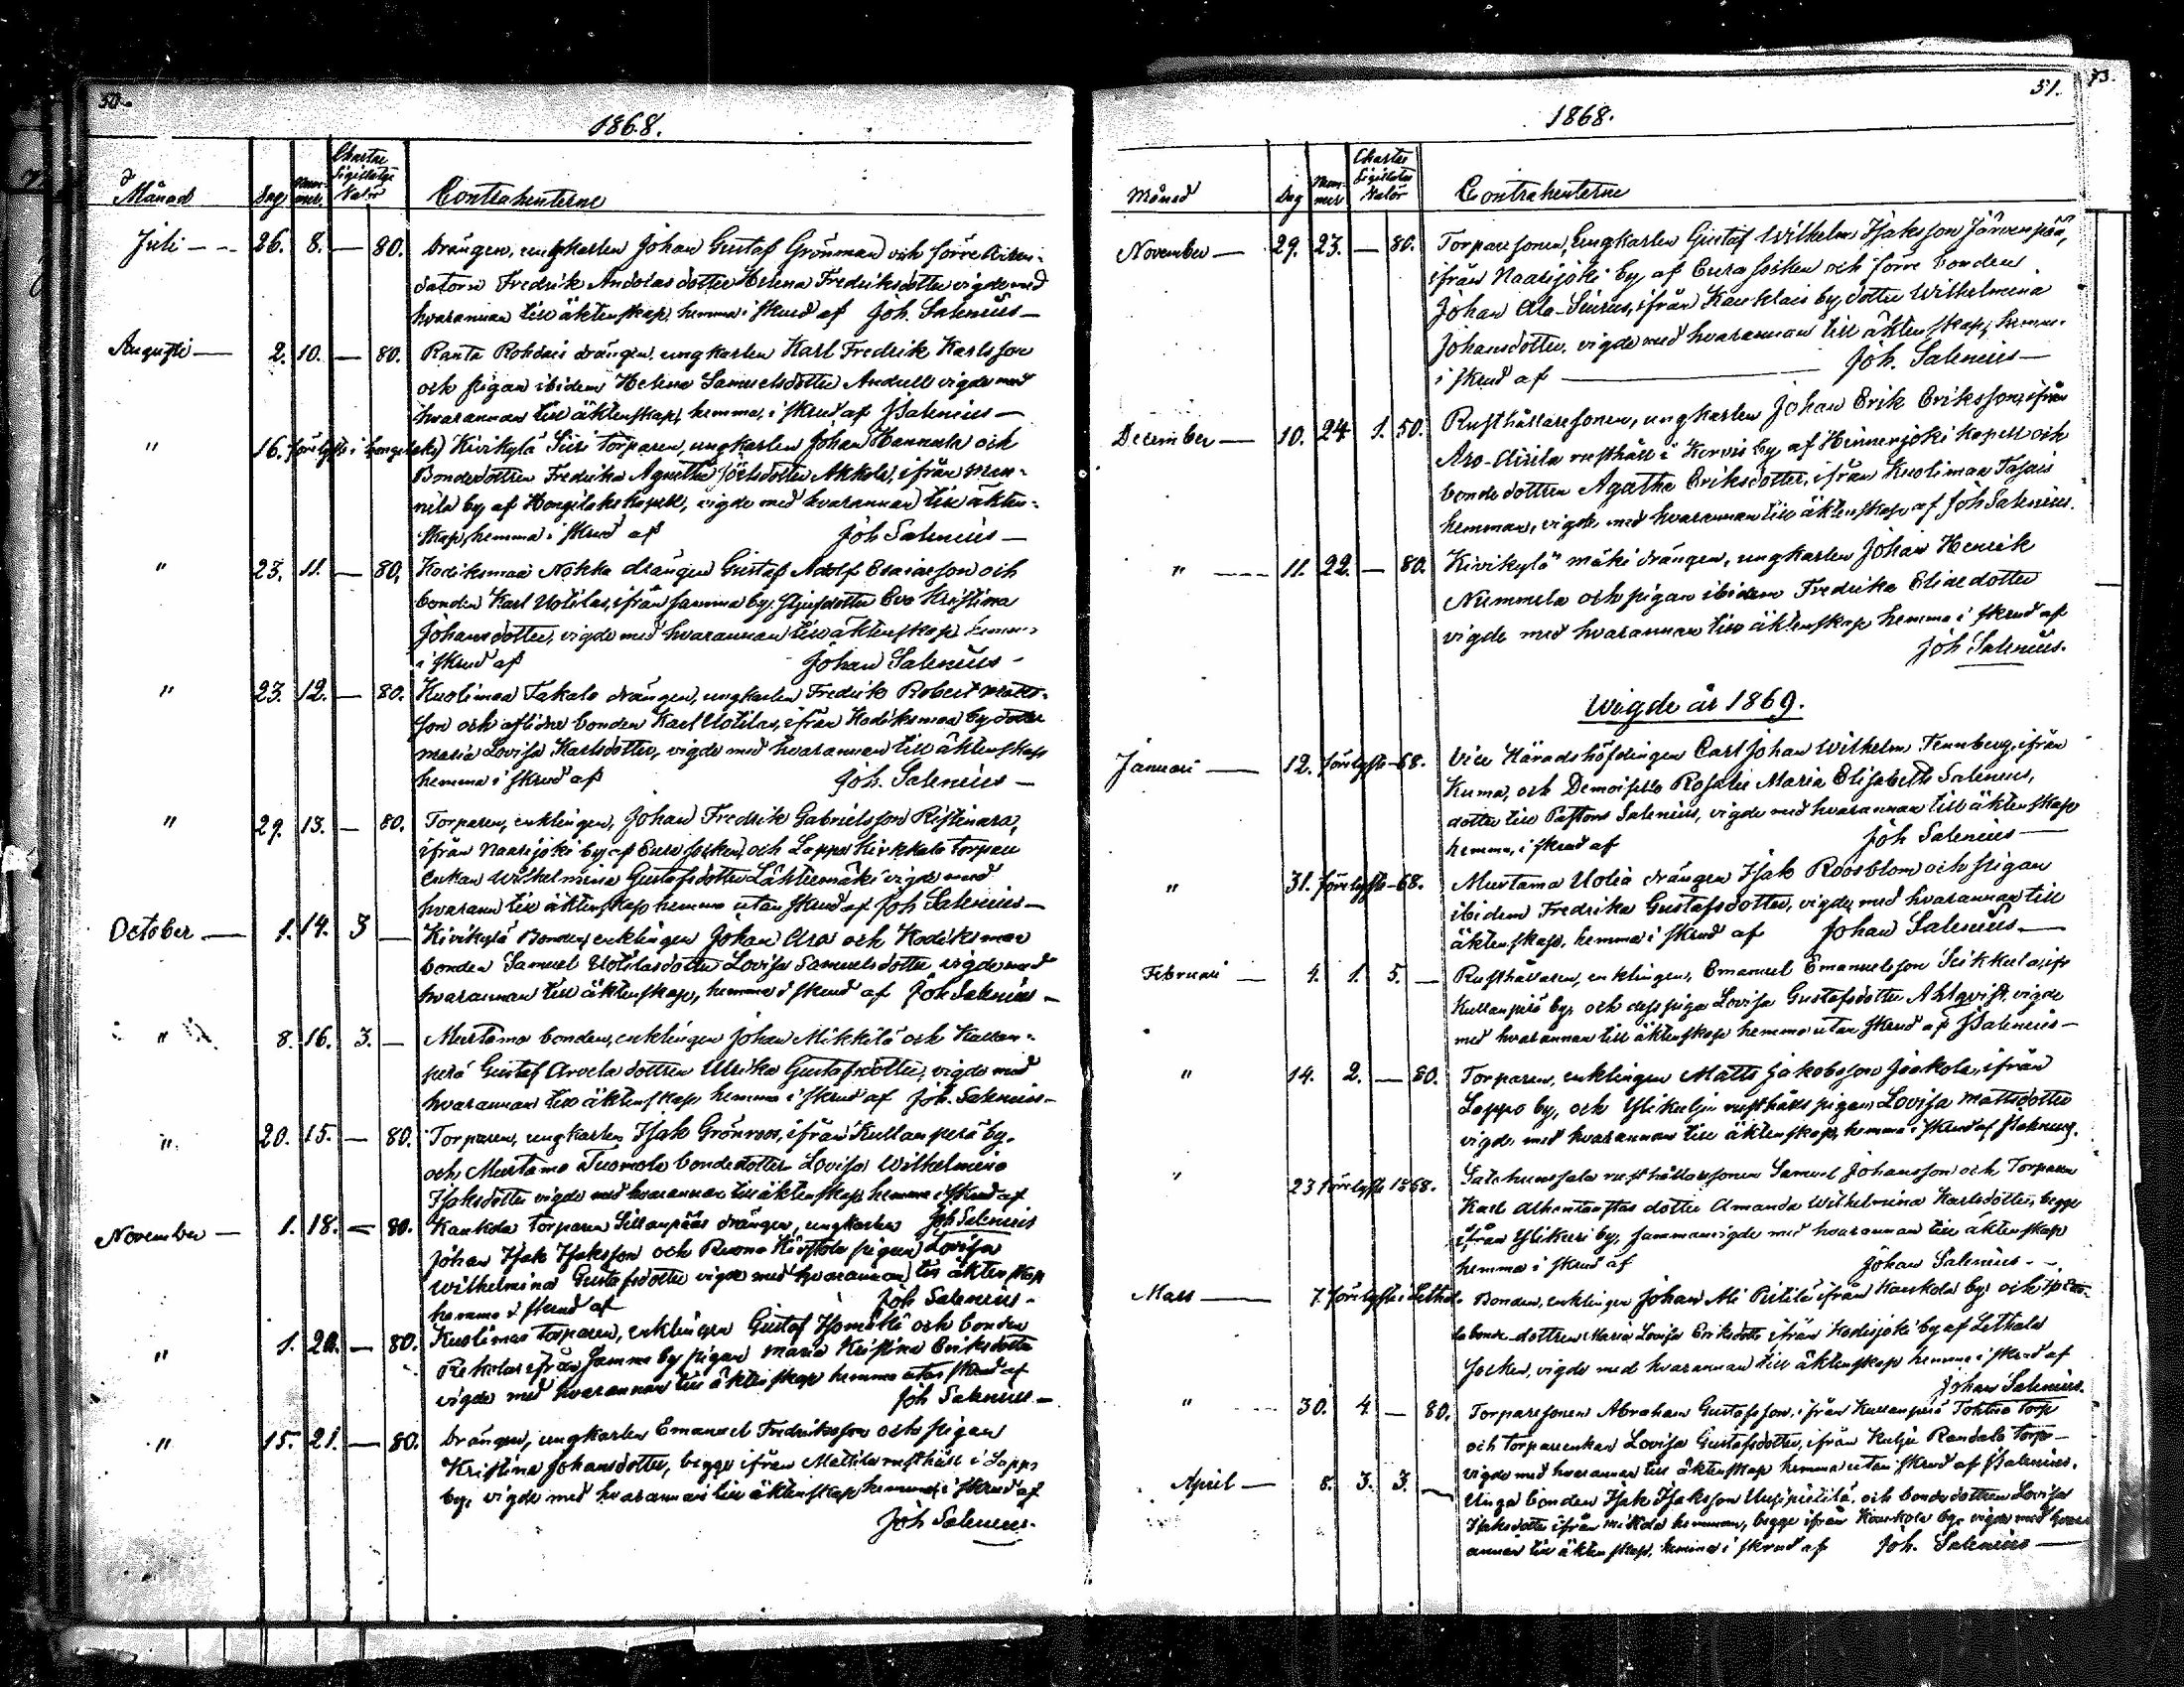 50.
1868.
Månad Dag Num-mer Chartae Sigillatae Valör Contrahenterne
Juli — 26. 8. — 80. Drängen, ungkarlen Johan Gustaf Grönman och förre
datorn Fredrik Andolas dotter Helena Fredriksdotter vigde med
hvarannan till äktenskap, hemma i skrud af Joh. Salenius —
Augusti — 2. 10. — 80. Ranta Rohdais drängen, ungkarlen Karl Fredrik Karlsson
och pigan ibidem Helena Samuelsdotter Andell vigde med
hvarannan till äktenskap, hemma, i skrud af JSalenius —
" 16. förelyste i Kivikylä Siiri torparen, ungkarlen Johan Hannula och
Bondedottren Fredrika Agnetha Joelsdotter Akkola, ifrån Men-
nila by af Hongilaks kapell, vigde med hvarannan till äkten-
skap, hemma i skrud af Joh Salenius —
" 23. 11. — 80. Kodiksmaa Nokka drängen Gustaf Adolf Esaiasson och
bonden Karl Uotilas, ifrån samma by, styfdotter Eva Kristina
Johansdotter, vigde med hvarannan till äktenskap hemma
i skrud af Johan Salenius —
" 23. 12. — 80. Kuolimaa Takala drängen, ungkarlen Fredrik Robert Matts-
son och aflidne bonden Karl Uotilas, ifrån Kodiksmaa by dotter
Maria Lovisa Karlsdotter, vigde med hvarannan till äktenskap
hemma i skrud af Joh. Salenius —
" 29. 13. — 80. Torparen, enklingen, Johan Fredrik Gabrielsson Ristinara,
ifrån Naarijoki by af Eura socken, och Lappo Kirkkala torpare
enkan Wilhelmina Gustafsdotter Lähteenmäki vigde med
hvarann till äktenskap hemma utan skrud af Joh Salenius —
October — 1. 14. 3 — Kivikylä Bonden, enklingen Johan Aro och Kodiksmaa
bonden Samuel Uotilas dotter Lovisa Samuelsdotter vigde med
hvarannan till äktenskap, hemma i skrud af Joh Salenius —
" 8. 16. 3. — Murtamo bonden, enklingen Johan Mikkilä och Kullan-
perä Gustaf Arvela dottren Ulrika Gustafsdotter, vigde med
hvarannan till äktenskap hemma i skrud af Joh. Salenius —
" 20. 15. — 80. Torparen, ungkarlen Isak Grönroos, ifrån Kullanperä by,
och Murtamo Tuomola bondedotter Lovisa Wilhelmina
Isaksdotter vigde med hvarannan till äktenskap hemma i skrud af
Joh Salenius
November — 1. 18. — 80. Kaukola torparen Sillanpääs drängen, ungkarlen
Johan Isak Isaksson och Ruona pigan Lovisa
Wilhelmina Gustafsdotter vigde med hvarannan till äktenskap
hemma i skrud af Joh Salenius —
" 1. 20. — 80. Kuolimaa torparen, enklingen Gustaf Isomäki och bonden
Rekolas ifrån samma by pigan Maria Kristina Eriksdotter
vigde med hvarannan till äktenskap hemma utan skrud af
Joh Salenius —
" 15. 21. — 80. Drängen, ungkarlen Emanuel Fredriksson och pigan
Kristina Johansdotter, begge ifrån Mattila rusthåll i Lappo
by, vigde med hvarannan till äktenskap hemma, i skrud af
Joh Salenius.
51.
73.
1868.
Månad Dag Num-mer Chartae Sigillatae Valör Contrahenterne
November — 29. 23. — 80. Torparesonen, Ungkarlen Gustaf Wilhelm Isaksson Järvenpää,
ifrån Naarijoki by af Eura socken och förre bonden
Johan Ala-Sinrus, ifrån Kauklais by dotter Wilhelmina
Johansdotter, vigde med hvarannan till äktenskap, hemma
i skrud af — Joh. Salenius —
December — 10. 24. 1. 50. Rusthållaresonen, ungkarlen Johan Erik Eriksson, ifrån
Aro-Airila rusthåll i Korvis by af Hinnerjoki kapell och
bondedottren Agatha Eriksdotter, ifrån Kuolimaa Tasais
hemman, vigde med hvarannan till äktenskap af Joh Salenius.
" — 11. 22. — 80. Kivikylä mäki drängen, ungkarlen Johan Henrik
Nummela och pigan ibidem Fredrika Eliaedotter
vigde med hvarannan till äktenskap hemma i skrud af
Joh Salenius.
Wigde år 1869.
Januari — 12. förelyste -68. Vice Häradshöfdingen Carl Johan Wilhelm Tennberg, ifrån
Kumo, och Demoiselle Rosalie Maria Elisabeth Salenius,
dotter till Pastorn Salenius, vigde med hvarannan till äktenskap
hemma, i skrud af Joh Salenius —
" 31. förelyste -68. Murtamo Uotia drängen Isak Roosblom och pigan
ibidem Fredrika Gustafsdotter, vigde med hvarannan till
äktenskap, hemma i skrud af Johan Salenius —
Februari — 4. 1. 5. — Rusthållaren, enklingen, Emanuel Emanuelsson Seikkula, ifr
Kullanperä by, och dess piga Lovisa Gustafsdotter Ahlqvist, vigde
med hvarannan till äktenskap hemma utan skrud af JSalenius —
" 14. 2. — 80. Torparen, enklingen Matts Jakobsson Jaakola, ifrån
Lappo by, och Ylikulju rusthålls pigan Lovisa Mattsdotter
vigde med hvarannan till äktenskap, hemma i skrud af JSalenius.
" 23 förelyste 1868. rusthållaresonen Samuel Johansson och Torparen
Karl dotter Amanda Wilhelmina Karlsdotter, begge
ifrån by, sammanvigde med hvarannan till äktenskap
hemma i skrud af Johan Salenius —
Mars — 7. förelyste i Lethala Bonden, enklingen Johan Ali Pietilä ifrån Kaukola by och
bonde-dottren Maria Lovisa Eriksdotter ifrån Kodisjoki by af Lethala
socken, vigde med hvarannan till äktenskap hemma i skrud af
Johan Salenius.
" 30. 4. — 80. Torparesonen Abraham Gustafsson, ifrån Kullanperä torp
och torpareenkan Lovisa Gustafsdotter, ifrån Kulju Randala torp —
vigde med hvarannan till äktenskap hemma utan skrud af JSalenius.
April — 8. 3. 3. — Unga bonden Isak Isaksson Uusipietilä, och bondedottren Lovisa
Isaksdotter ifrån Mikola hemman, begge ifrån Kaukola by, vigde med hvar
annan till äktenskap, hemma i skrud af Joh. Salenius —